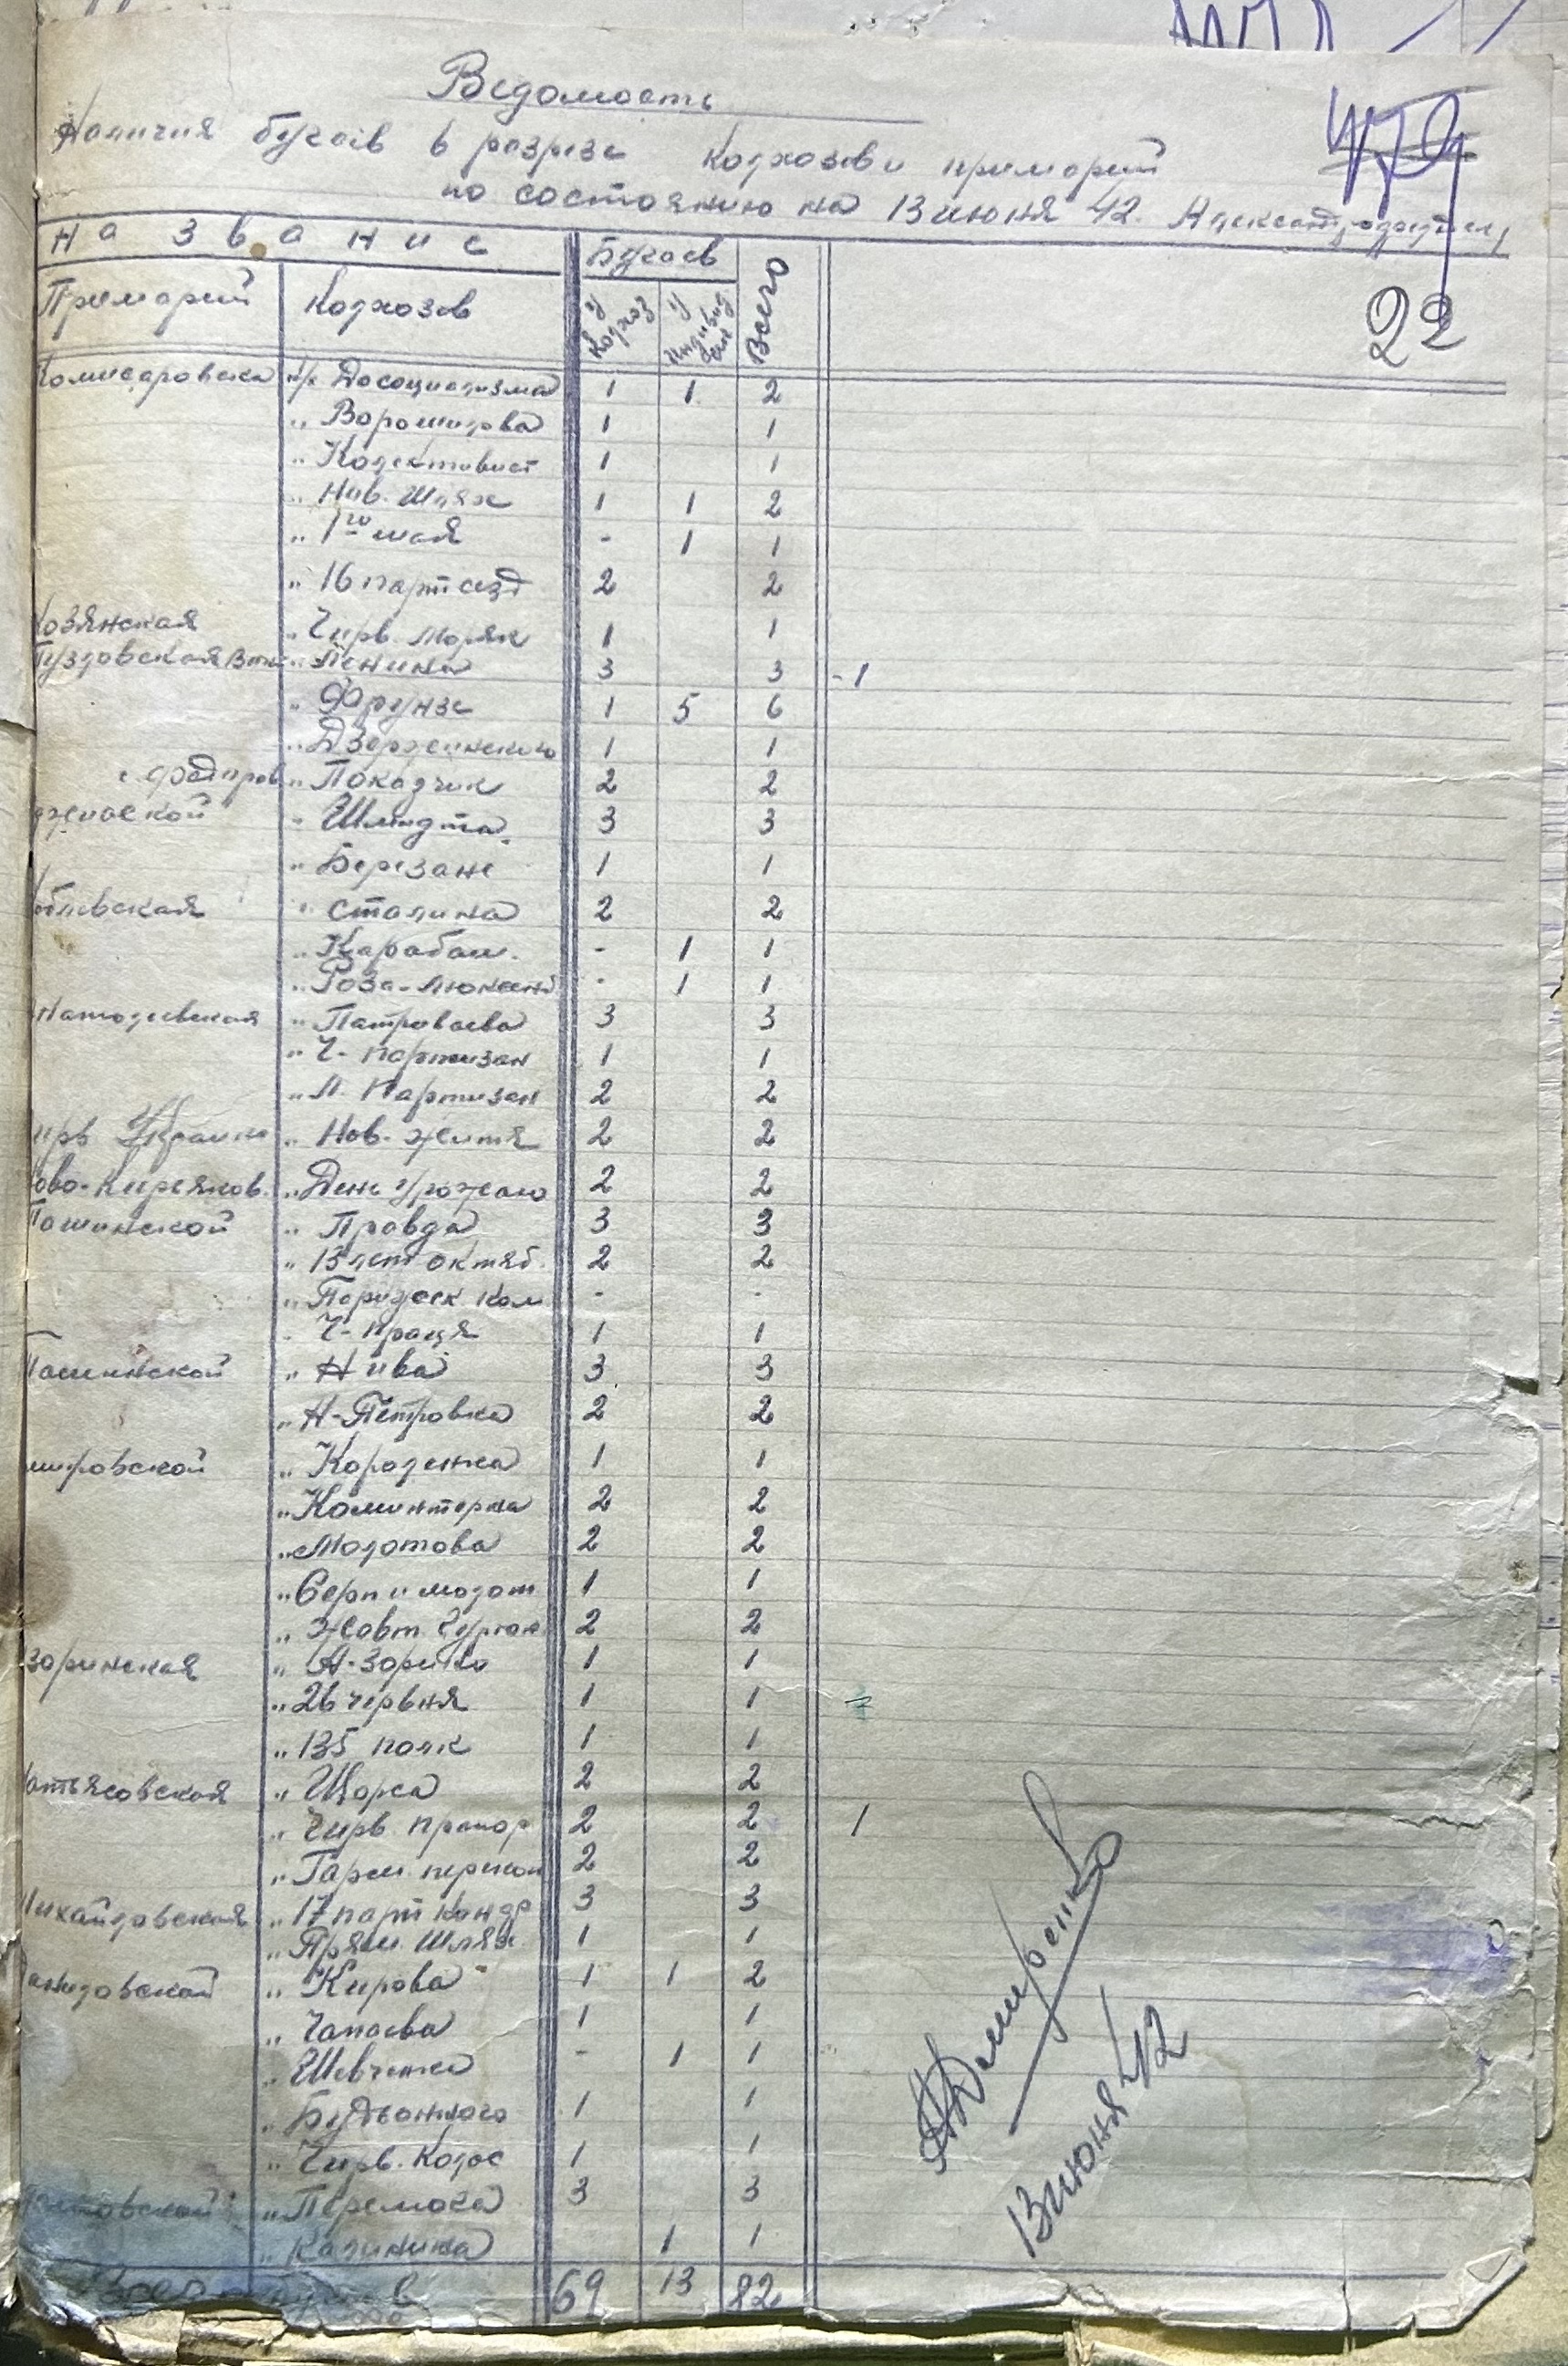 Ведомость
Наличия бугаів в розрезе колхозов и примарий
по состоянию на 13 июня 42.
Название Бугаев Всего
Примарий Колхозов у колхоз у индивид
22
Комисаровска к/х Досоциализма 1 1 2
„ Ворошилова 1 1
„ Колективист 1 1
„ Нов. Шлях 1 1 2
„ 1го мая - 1 1
„ 16 партсезд 2 2
козянская „ Черв. Моряк 1 1
Тузловская „ Ленина 3 3 - 1
„ Фрунзе 1 5 6
„ Дзержинского 1 1
„ Показчик 2 2
„ Шмидта 3 3
„ Березане 1 1
облевская „ Сталина 2 2
„ Карабаш. - 1 1
„ Роза-Люксенб - 1 1
Анатолиевская „ Петроваева 3 3
„ Ч-партизан 1 1
„ Л. Партизан 2 2
ирв Украина „ Нов. життя 2 2
ово-Киреяков. „ День Урожаю 2 2
Ташинской „ Правда 3 3
„ 13 лет октяб. 2 2
„ Парижск. ком - -
„ Ч-праця 1 1
Ташинской „ Нива 3 3
„ Н-Петровка 2 2
мировской „ Короленка 1 1
„ Коминтерна 2 2
„ Молотова 2 2
„ Серп и молот 1 1
„ Жовт. 2 2
зоринская „ А-Зорика 1 1
„ 26 червня 1 1
„ 135 полк 1 1
атьясовская „ Щорса 2 2
„ Чирв. прапор 2 2 1
„ Гарм. перекоп 2 2
Михайловская „ 17 парт конфр 3 3
„ Прям. Шлях 1 1
„ Кирова 1 1 2
„ Чапаева 1 1
„ Шевченка - 1 1
„ Будьонного 1 1
„ Чирв. Колос 1 1
„ Перемога 3 3
„ Калинина 1 1
Всего 69 13 82
Домиренко
13 июня 42